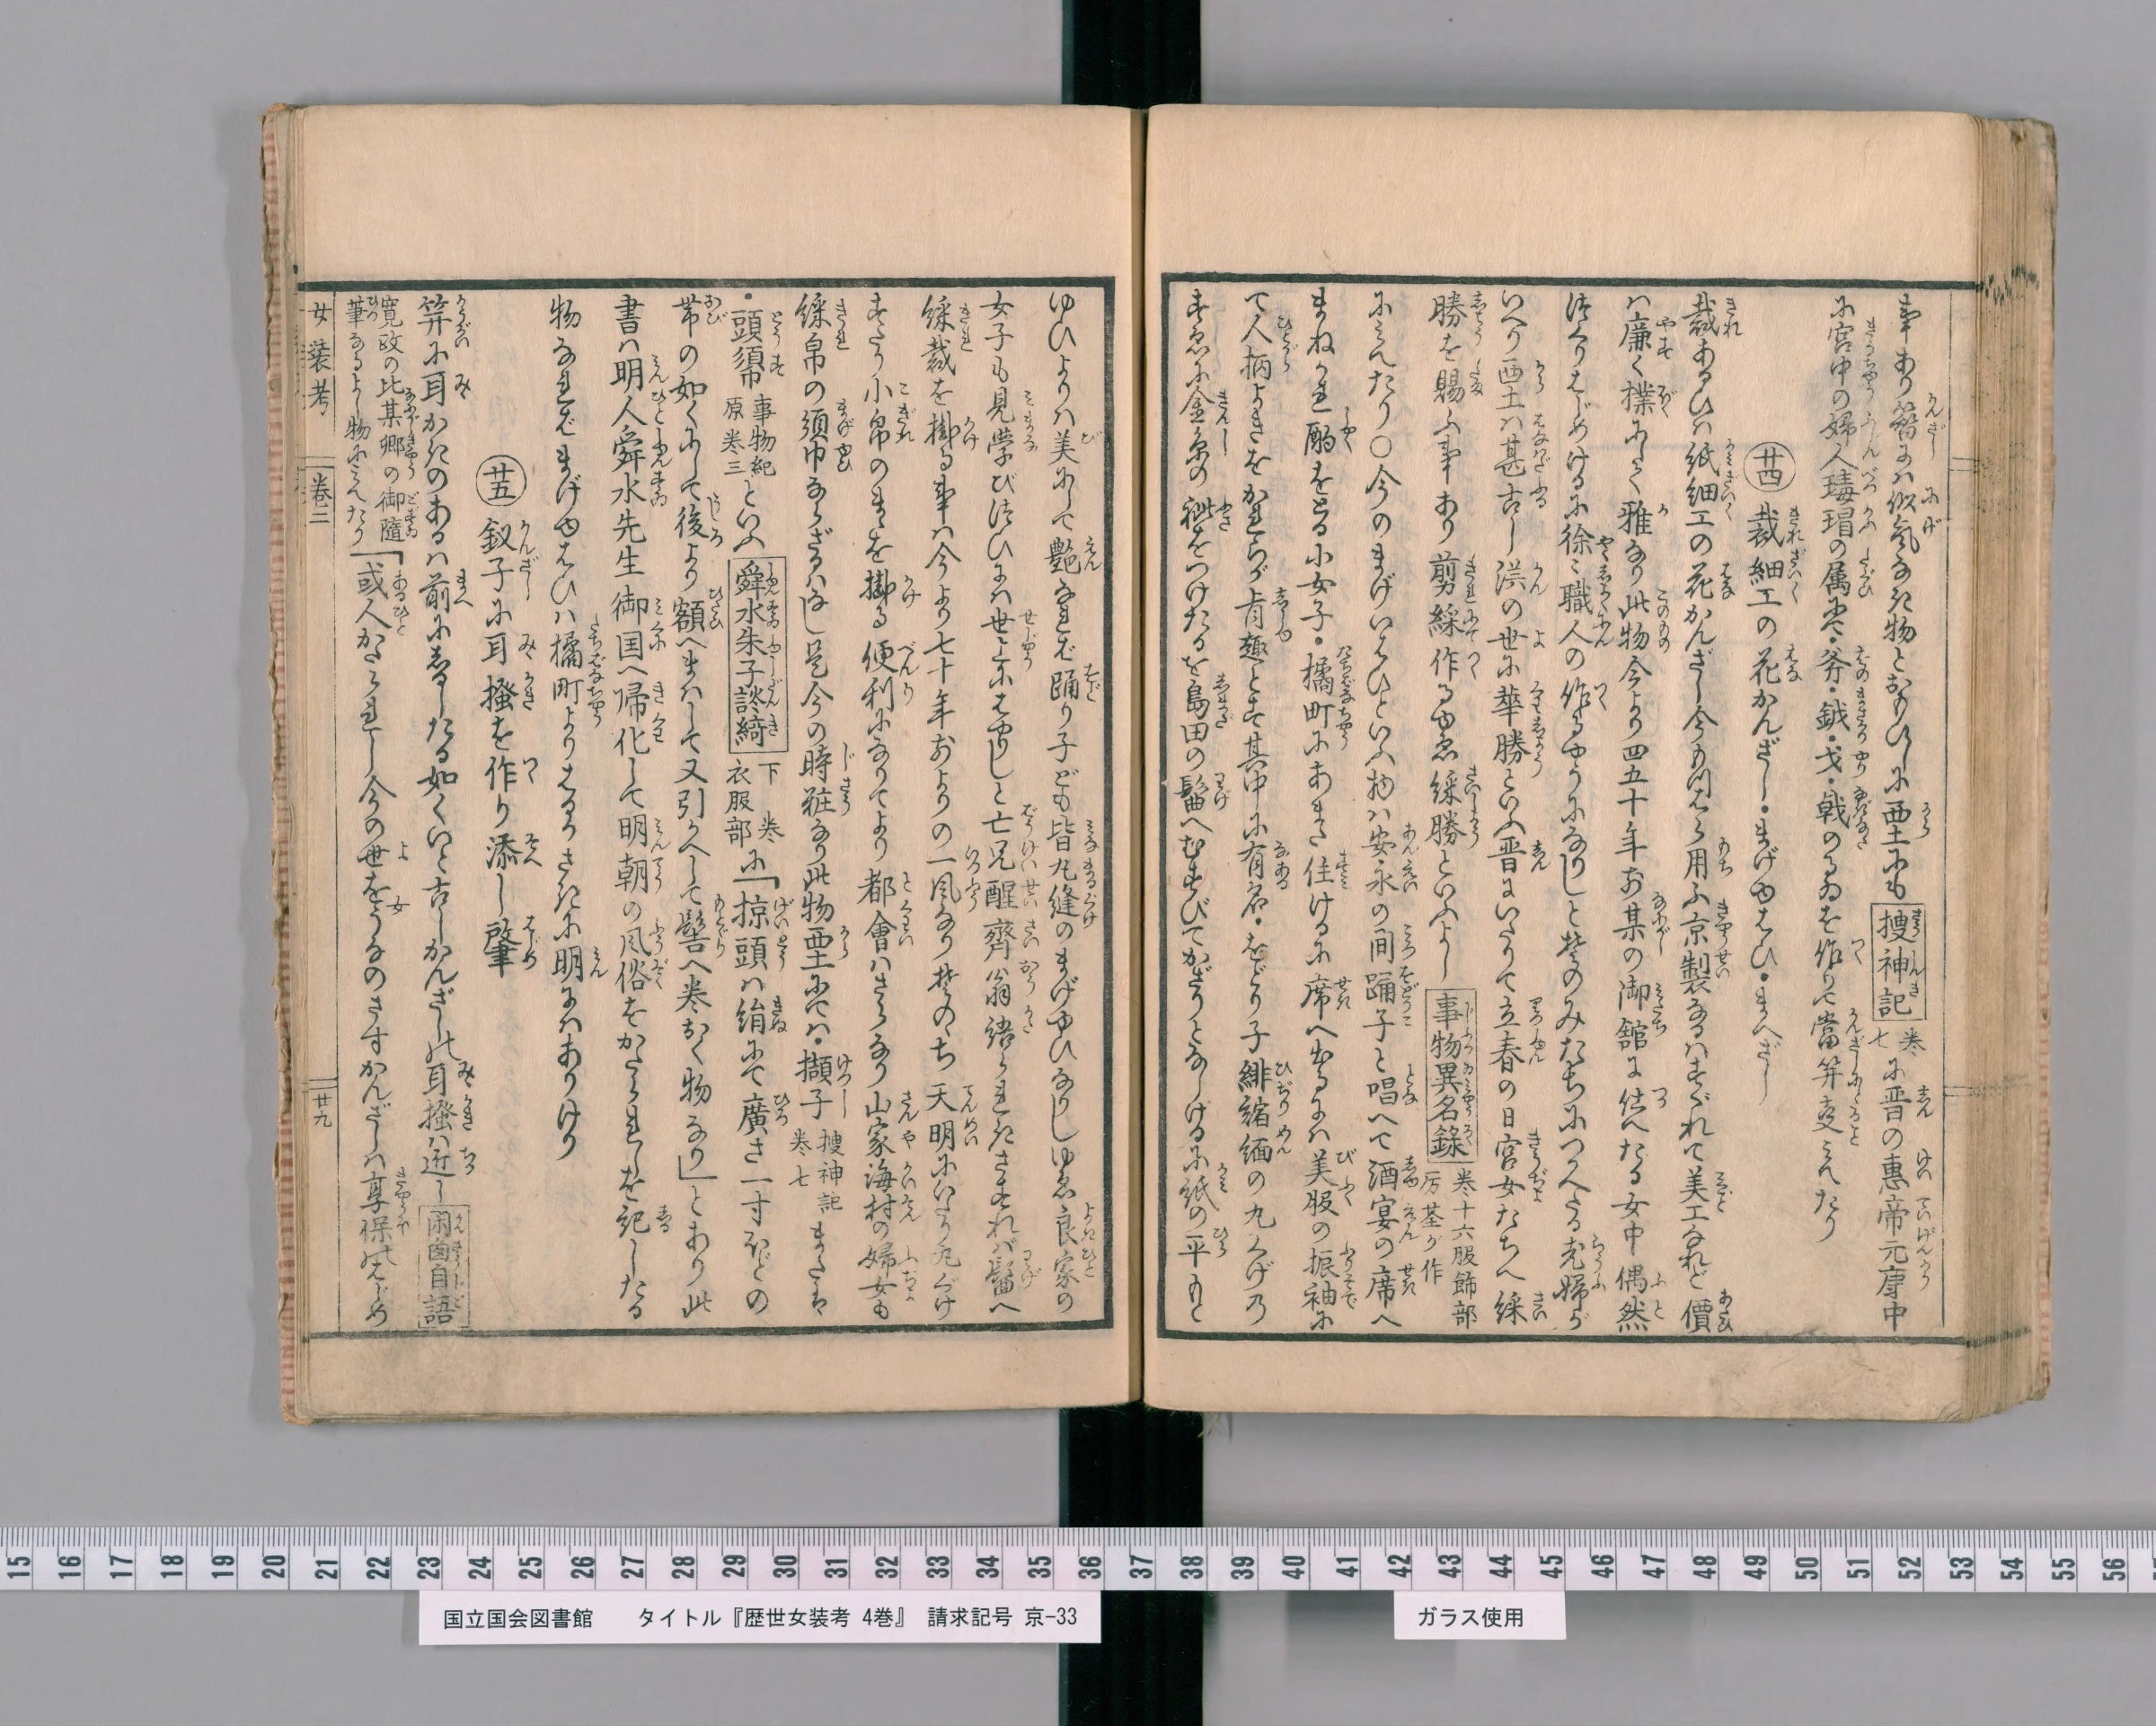 事あり簪には似気なき物とおもひしに西土にも捜神記巻七に晋の恵帝元康中
に宮中の婦人瑇瑁の属にて・斧・鉞・戈・戟のるゐを作りて當笄事みえたり
廿四 裁細工の花かんざし・まげゆはひ・まへざし
裁あるひは紙細工の花かんざし今も用ふ京製なるはすぐれて美工なれど價
ハ廉く撲にして雅なり此物今より四五十年お某の御舘に仕へたる女中偶然
作りはじめけるに徐々職人の作るやうになりしと其のみたちにつかへたる老婦が
いへり西土ハ甚古し漢の世に華勝といふ晋にいたりて立春の日宮女たちへ綵
勝を賜ふ事あり剪綵作るゆゑ綵勝といふよし事物異名録巻十六服飾部厉荃が作
にみえたり○今のまげいはひといふ物ハ安永の間踊子と唱へて酒宴の席へ
まねかれ酌をとる小女子・橘町にあまた住けるに席へ出るにハ美服の振袖に
て人柄よきをかれらが肯趣とす其中に有名・をどり子緋縮緬の丸くげ乃
すゑに金糸の総をつけたるを島田の髷へむすびてかざりとなしけるに紙の平もと
ゆひよりハ美にして艶なれば踊り子ども皆丸縫のまげゆひなりしゆゑ良家の
女子も見学び結ひにハ世上にはやりしと亡兄醒齋翁語られきされバ髷へ
綵裁を掛る事ハ今より七十年およりの一風なり其のち天明にいたり丸ぐけ
すたり小帛のまゝを掛る便利になりてより都會ハさらなり山家海村の婦女も
綵帛の須巾ならざるハなし是今の時粧なり此物西土にてハ・擷子捜神記巻七または
・頭須事物紀原巻三といふ舜水朱子談綺下巻衣服部に「掠頭ハ絹にて廣さ一寸ほどの
帯の如くにして後より額へまハして又引かへして髻へ巻おく物なり」とあり此
書ハ明人舜水先生御国へ帰化して明朝の風俗をかたられしを記したる
物なればまげゆはひハ橘町よりはるかさきに明にハありけり
廿五 釵子に耳搔を作り添し肇
笄に耳かきのあるハ前にしるしたる如くいと古しかんざしの耳搔ハ近し閑窗自語
寛政の比某郷の御隨筆なるよし物にみえたり「或人かたられし今の世をうなのさすかんざしハ享保のはじめ
女装考 巻二 廿九
15 16 17 18 19 20 21 22 23 24 25 26 27 28 29 30 31 32 33 34 35 36 37 38 39 40 41 42 43 44 45 46 47 48 49 50 51 52 53 54 55 56
国立国会図書館 タイトル『歴世女装考 4巻』 請求記号 京-33
ガラス使用